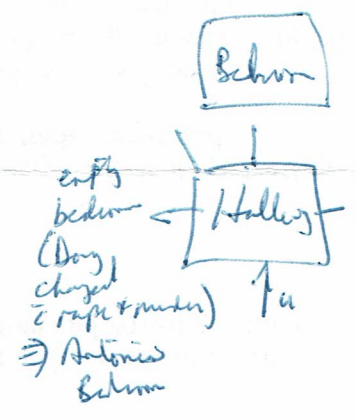 Bedroom
Hallway
empty
bedroom
(Dany
changed
c̄ rape + murder)
u
Antonio
Bedroom